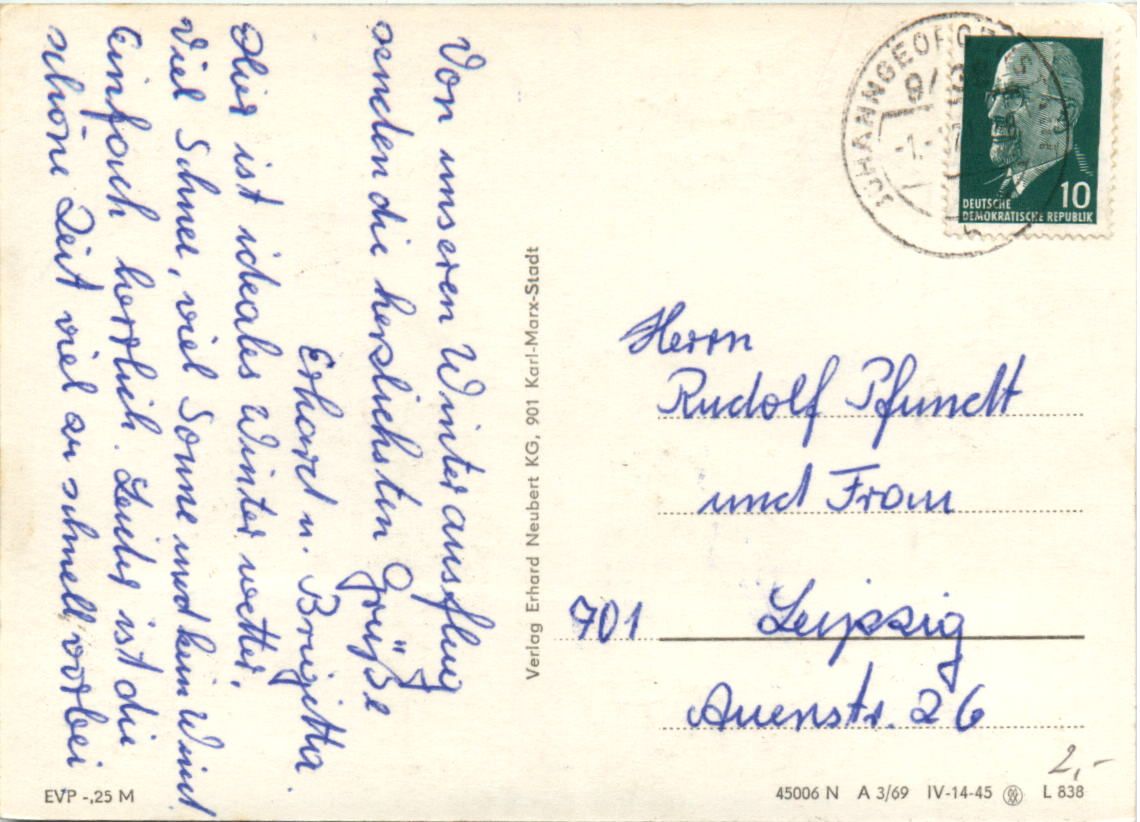 Von unseren Winterausflug
senden die herzlichsten Grüße
Erhard u. Brigitta.
Hier ist ideales Winterwetter.
Viel Schnee, viel Sonne und kein Wind
Einfach herrlich. Leider ist die
schöne Zeit viel zu schnell vorbei
EVP -,25 M
Verlag Erhard Neubert KG, 901 Karl-Marx-Stadt
JOHANNGEORGENSTADT
DEUTSCHE
DEMOKRATISCHE REPUBLIK
10
Herrn
Rudolf Pfundt
und Frau
701 Leipzig
Auenstr. 26
2,-
45006 N A 3/69 IV-14-45 L 838